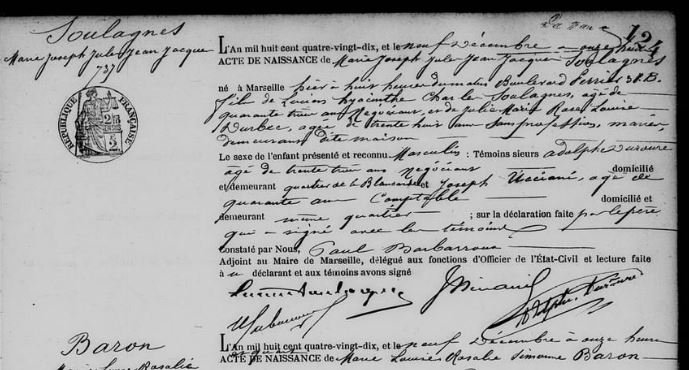 Soulagnes
Marie Joseph Jules Jean Jacques
737
RÉPUBLIQUE FRANÇAISE
124
L'An mil huit cent quatre-vingt-dix, et le neuf Décembre à onze heures
ACTE DE NAISSANCE de Marie Joseph Jules Jean Jacques Soulagnes
né à Marseille hier à huit heures du matin Boulevard Perrier 38.B.
fils de Lucien Hyacinthe Charles Soulagnes, âgé de
quarante trois ans Négociant, et de Julie Marie Rose Louise
Durbec, âgée de trente huit ans sans profession, mariés,
demeurant dite maison
Le sexe de l'enfant présenté et reconnu Masculin : Témoins sieurs Adolphe
âgé de trente trois ans négociant domicilié
et demeurant quartier de la et Joseph âgé de
quarante ans Comptable domicilié et
demeurant même quartier ; sur la déclaration faite par le père
qui a signé avec les témoins
Constaté par Nous, Paul Barbarroux
Adjoint au Maire de Marseille, délégué aux fonctions d'Officier de l'État-Civil et lecture faite
à déclarant et aux témoins avons signé
Baron
Rosalie
L'An mil huit cent quatre-vingt-dix, et le neuf Décembre à onze heures
ACTE DE NAISSANCE de Marie Louise Rosalie Simone Baron